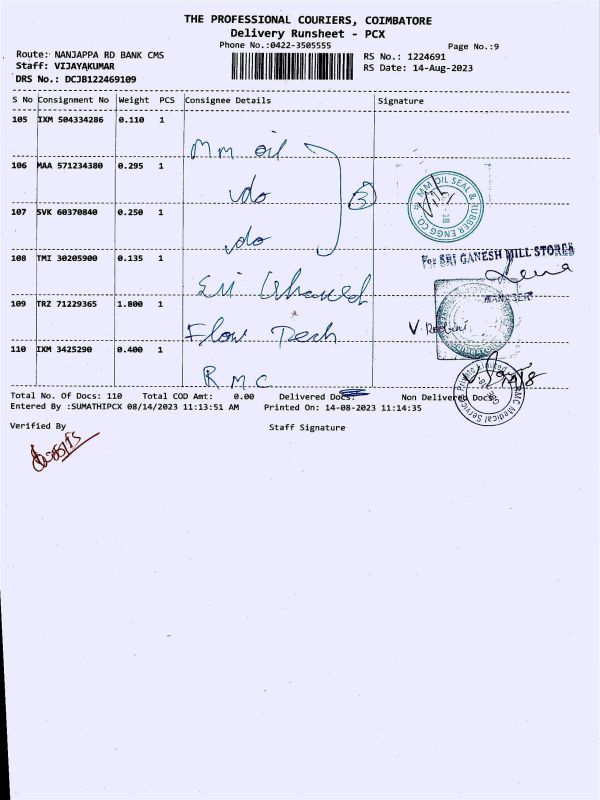 THE PROFESSIONAL COURIERS, COIMBATORE
Delivery Runsheet - PCX
Phone No.:0422-3505555
Page No.:9
Route: NANJAPPA RD BANK CMS
Staff: VIJAYAKUMAR
DRS No.: DCJB122469109
RS No.: 1224691
RS Date: 14-Aug-2023
S No Consignment No Weight PCS Consignee Details Signature
105 IXM 504334286 0.110 1
Mm oil
106 MAA 571234380 0.295 1
do
3
MM OIL SEAL & RUBBER ENGG CO.
18
107 SVK 60370840 0.250 1
do
108 TMI 30205900 0.135 1
For SRI GANESH MILL STORES
Sri Ghanesh
MANAGER
109 TRZ 71229365 1.800 1
Flow Tech
110 IXM 3425290 0.400 1
RMC
RMC Medical Private Limited
Total No. Of Docs: 110 Total COD Amt: 0.00 Delivered Docs: Non Delivered Docs:
Entered By :SUMATHIPCX 08/14/2023 11:13:51 AM Printed On: 14-08-2023 11:14:35
Verified By
Staff Signature